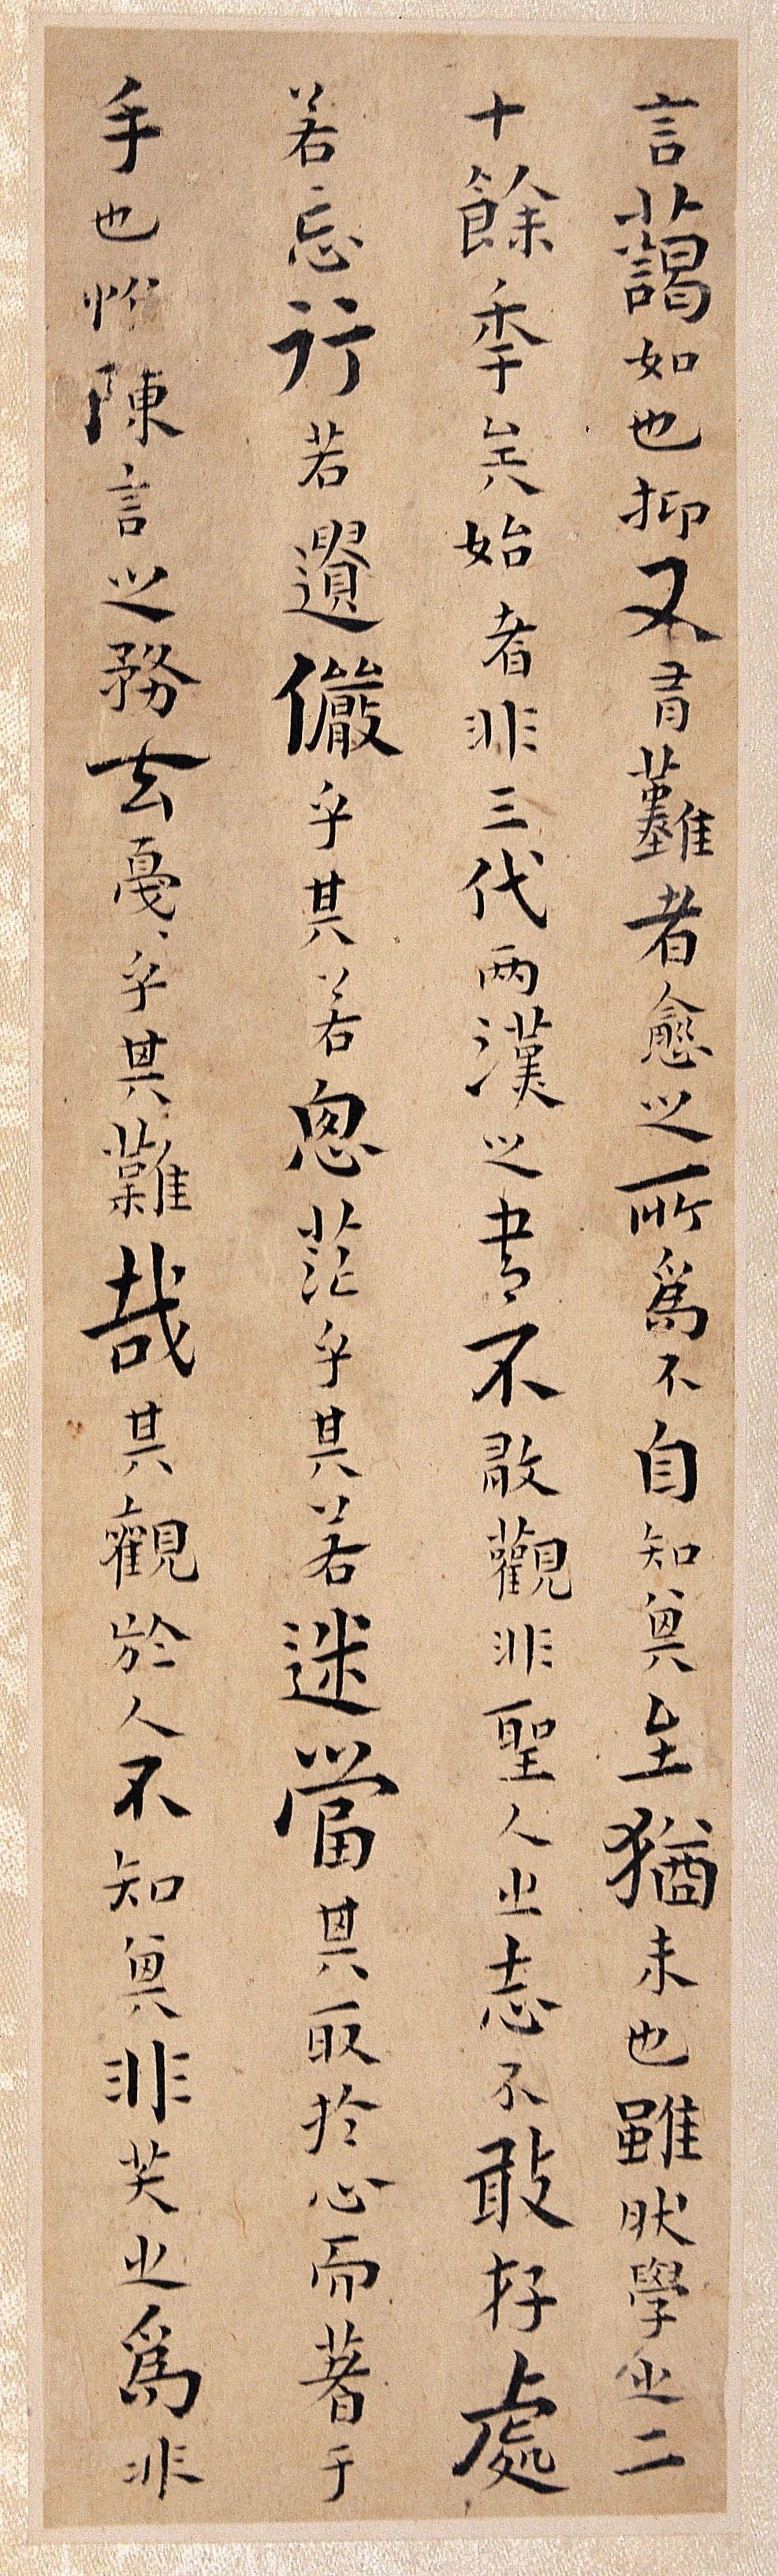 言藹如也抑又有難者愈之所爲不自知其至猶未也雖然學之二
十餘秊矣始者非三代两漢之書不敢觀非聖人之志不敢存處
若忘行若遺儼乎其若思茫乎其若迷當其取於心而著于
手也惟陳言之務去戛〻乎其難哉其觀於人不知其非笑之爲非